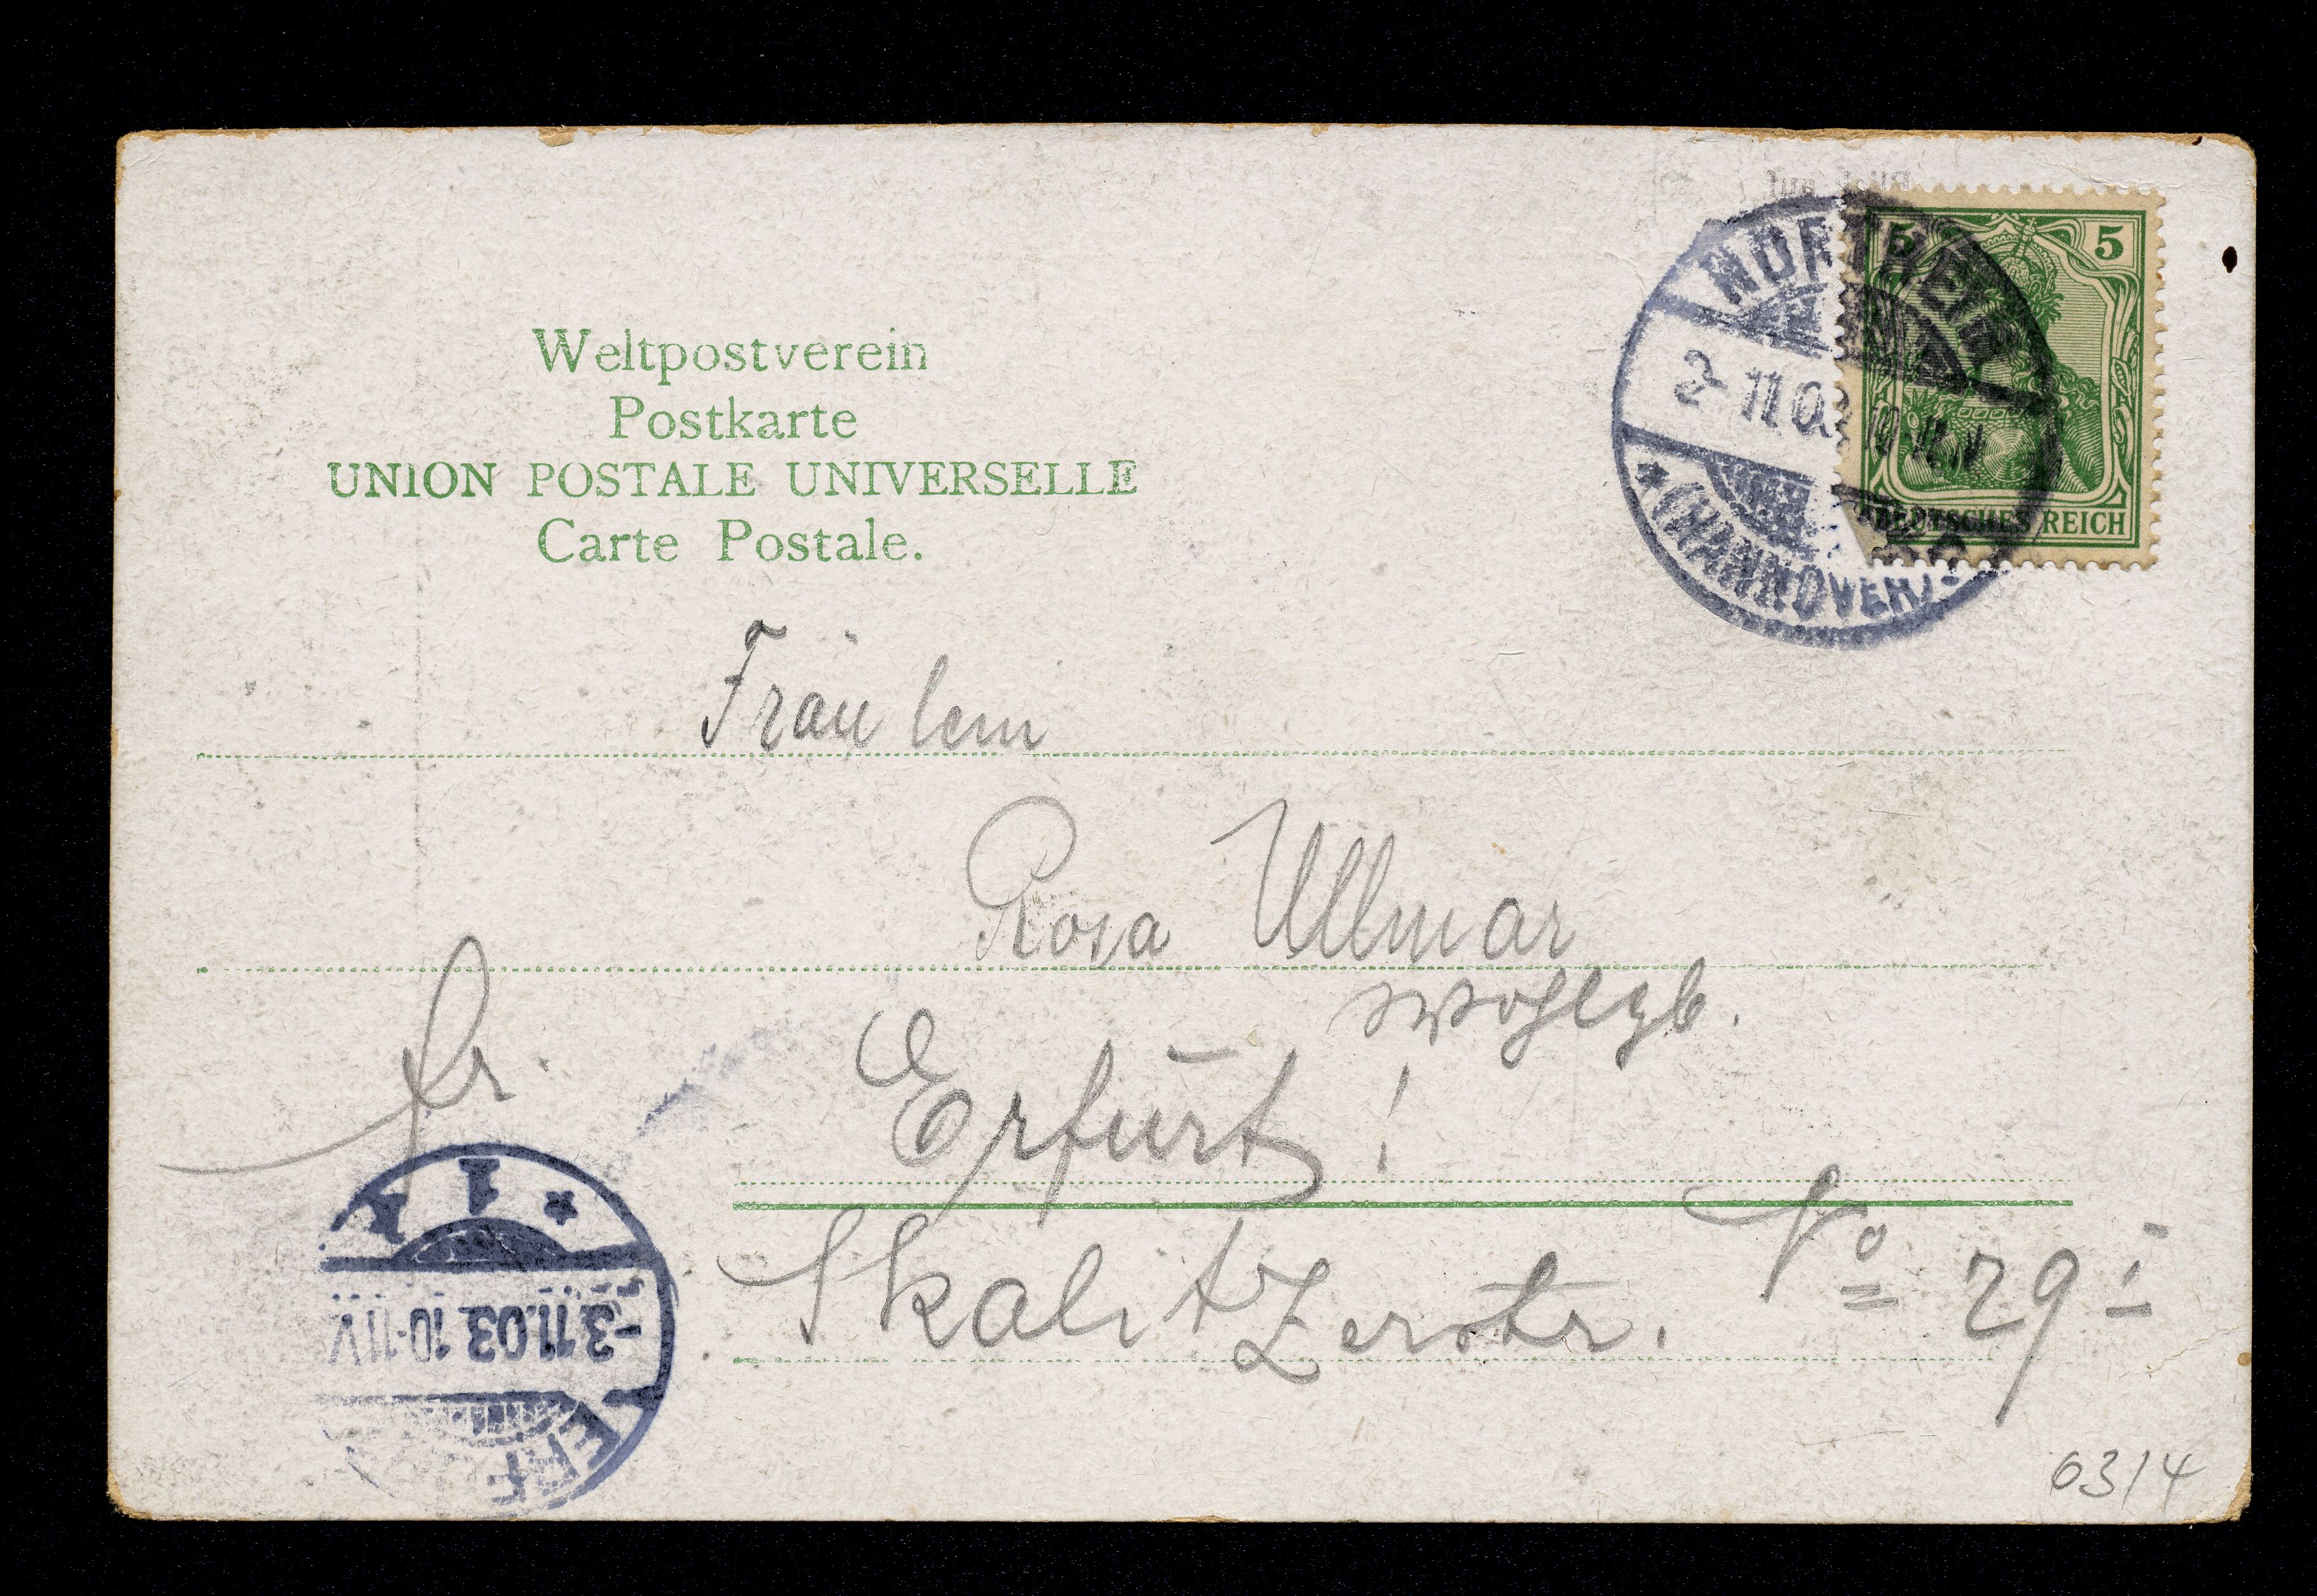 Weltpostverein
Postkarte
UNION POSTALE UNIVERSELLE
Carte Postale.
NORTHEIM
2 11 03 10-11 V
* (HANNOVER) *
5 5
DEUTSCHES REICH
Fräulein
Rosa Ullmar
Wohlgb.
fr.
Erfurt !
Skalitzerstr. No 29 I
* 1
-3.11.03. 10-11 V.
ERF
03/4